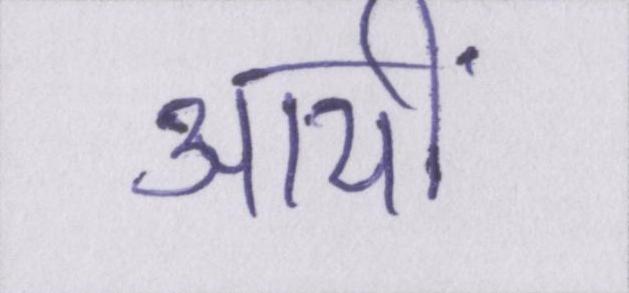 आयीं